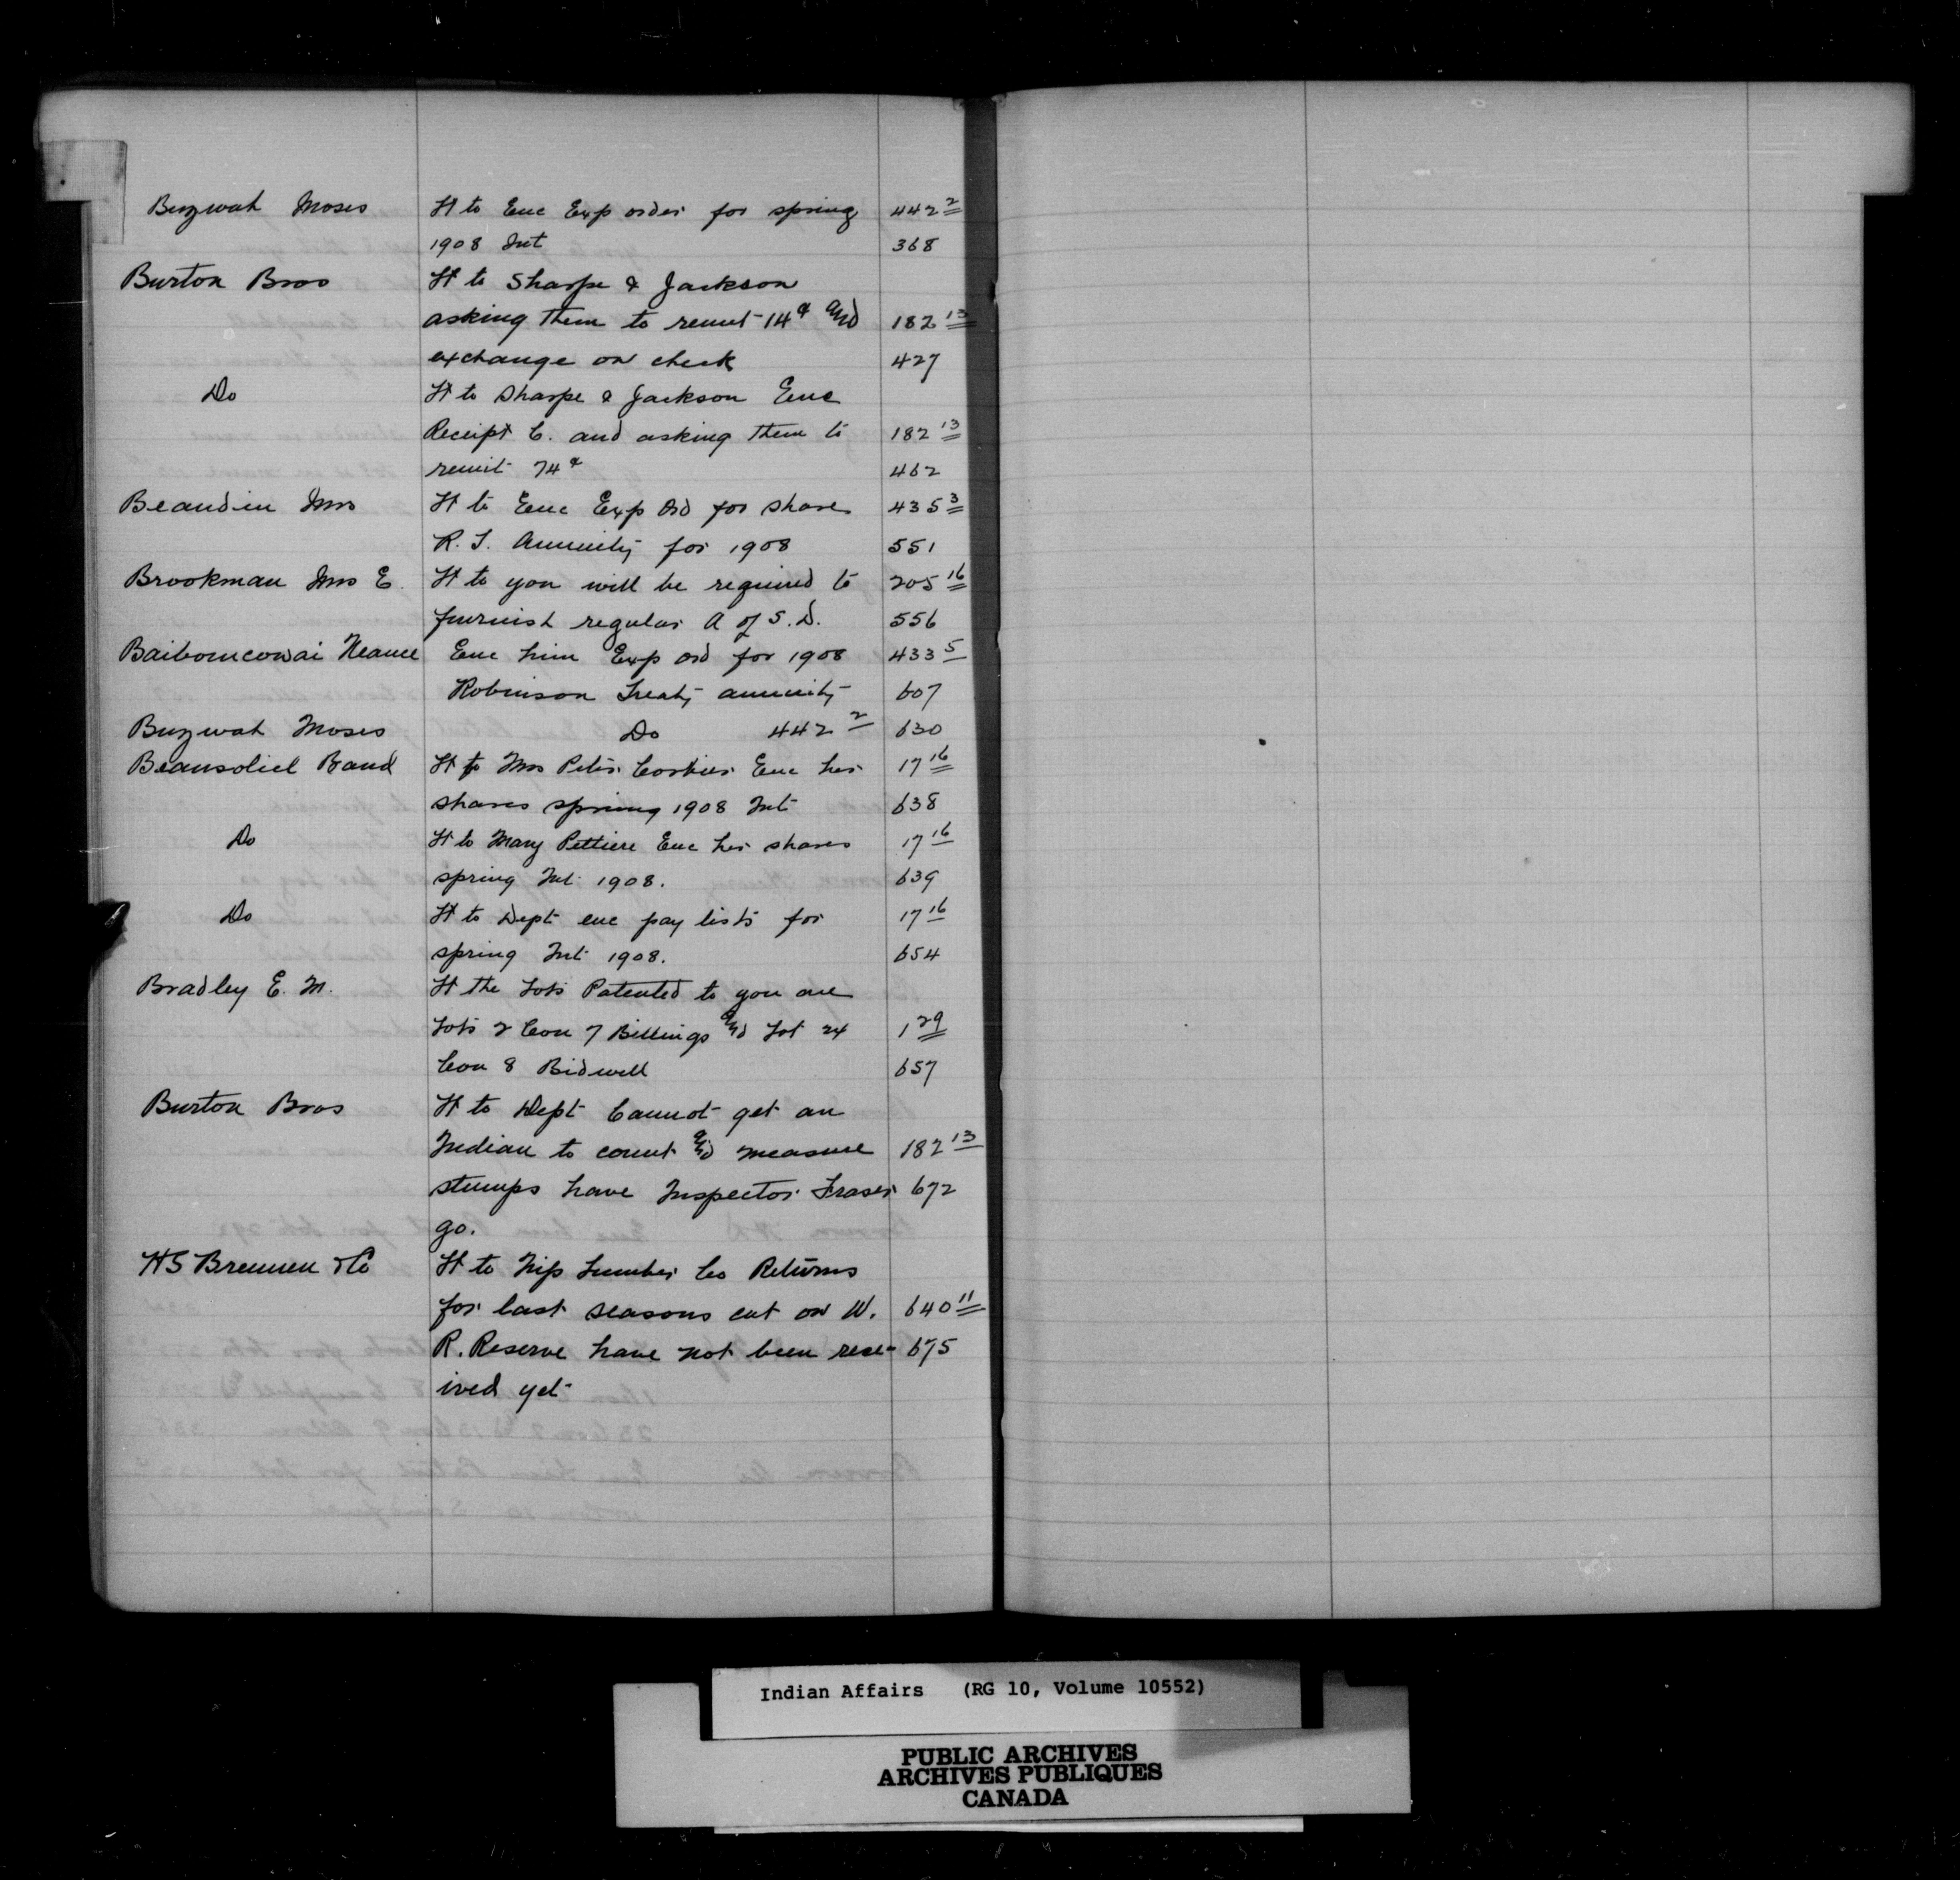 Buzwah Moses H to Enc Exp order for spring 442 2
1908 Int 368
Burton Bros H to Sharpe & Jackson
asking them to remit 14¢ and 182 13
exchange on check 427
Do H to Sharpe & Jackson Enc
Receipt C. and asking them to 182 13
remit 74¢ 462
Beaudin Mrs H to Enc Exp Ord for share 435 3
R. T. Annuity for 1908 551
Brookman Mrs E. H to you will be required to 205 16
furnish regular A of S. D. 556
Enc him Exp ord for 1908 433 5
Robinson Treaty annuity 607
Buzwah Moses Do 442 2 630
Beausoliel Band H to Mrs Peter Corbier Enc her 17 16
shares spring 1908 Int 638
Do H to Mary Pettiere Enc her shares 17 16
spring Int 1908. 639
Do H to Dept enc pay lists for 17 16
spring Int 1908. 654
Bradley E. M. H the Lots Patented to you are
Lots 2 Con 7 Billings and Lot 24 1 29
Con 8 Bidwell 657
Burton Bros H to Dept Cannot get an
Indian to count and measure 182 13
stumps have Inspector Fraser 672
go.
HS Brennen & Co H to Nip Lumber Co Returns
for last seasons cut on W. 640 11
R. Reserve have not been rece- 675
ived yet
Indian Affairs (RG 10, Volume 10552)
PUBLIC ARCHIVES
ARCHIVES PUBLIQUES
CANADA